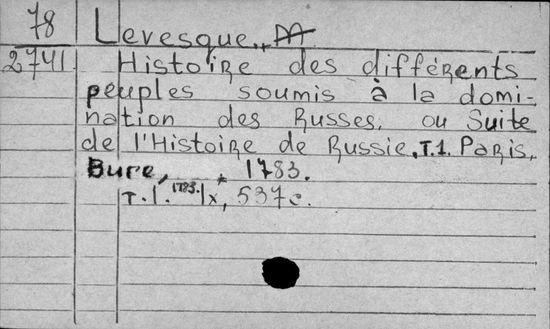 78 Levesque, M
2741 Histoire des différents
peuples soumis à la domi-
nation des Russes, ou Suite
de l'Histoire de Russie. T.1. Paris,
Bure, 1783.
T. 1. 1783. x, 537 c.